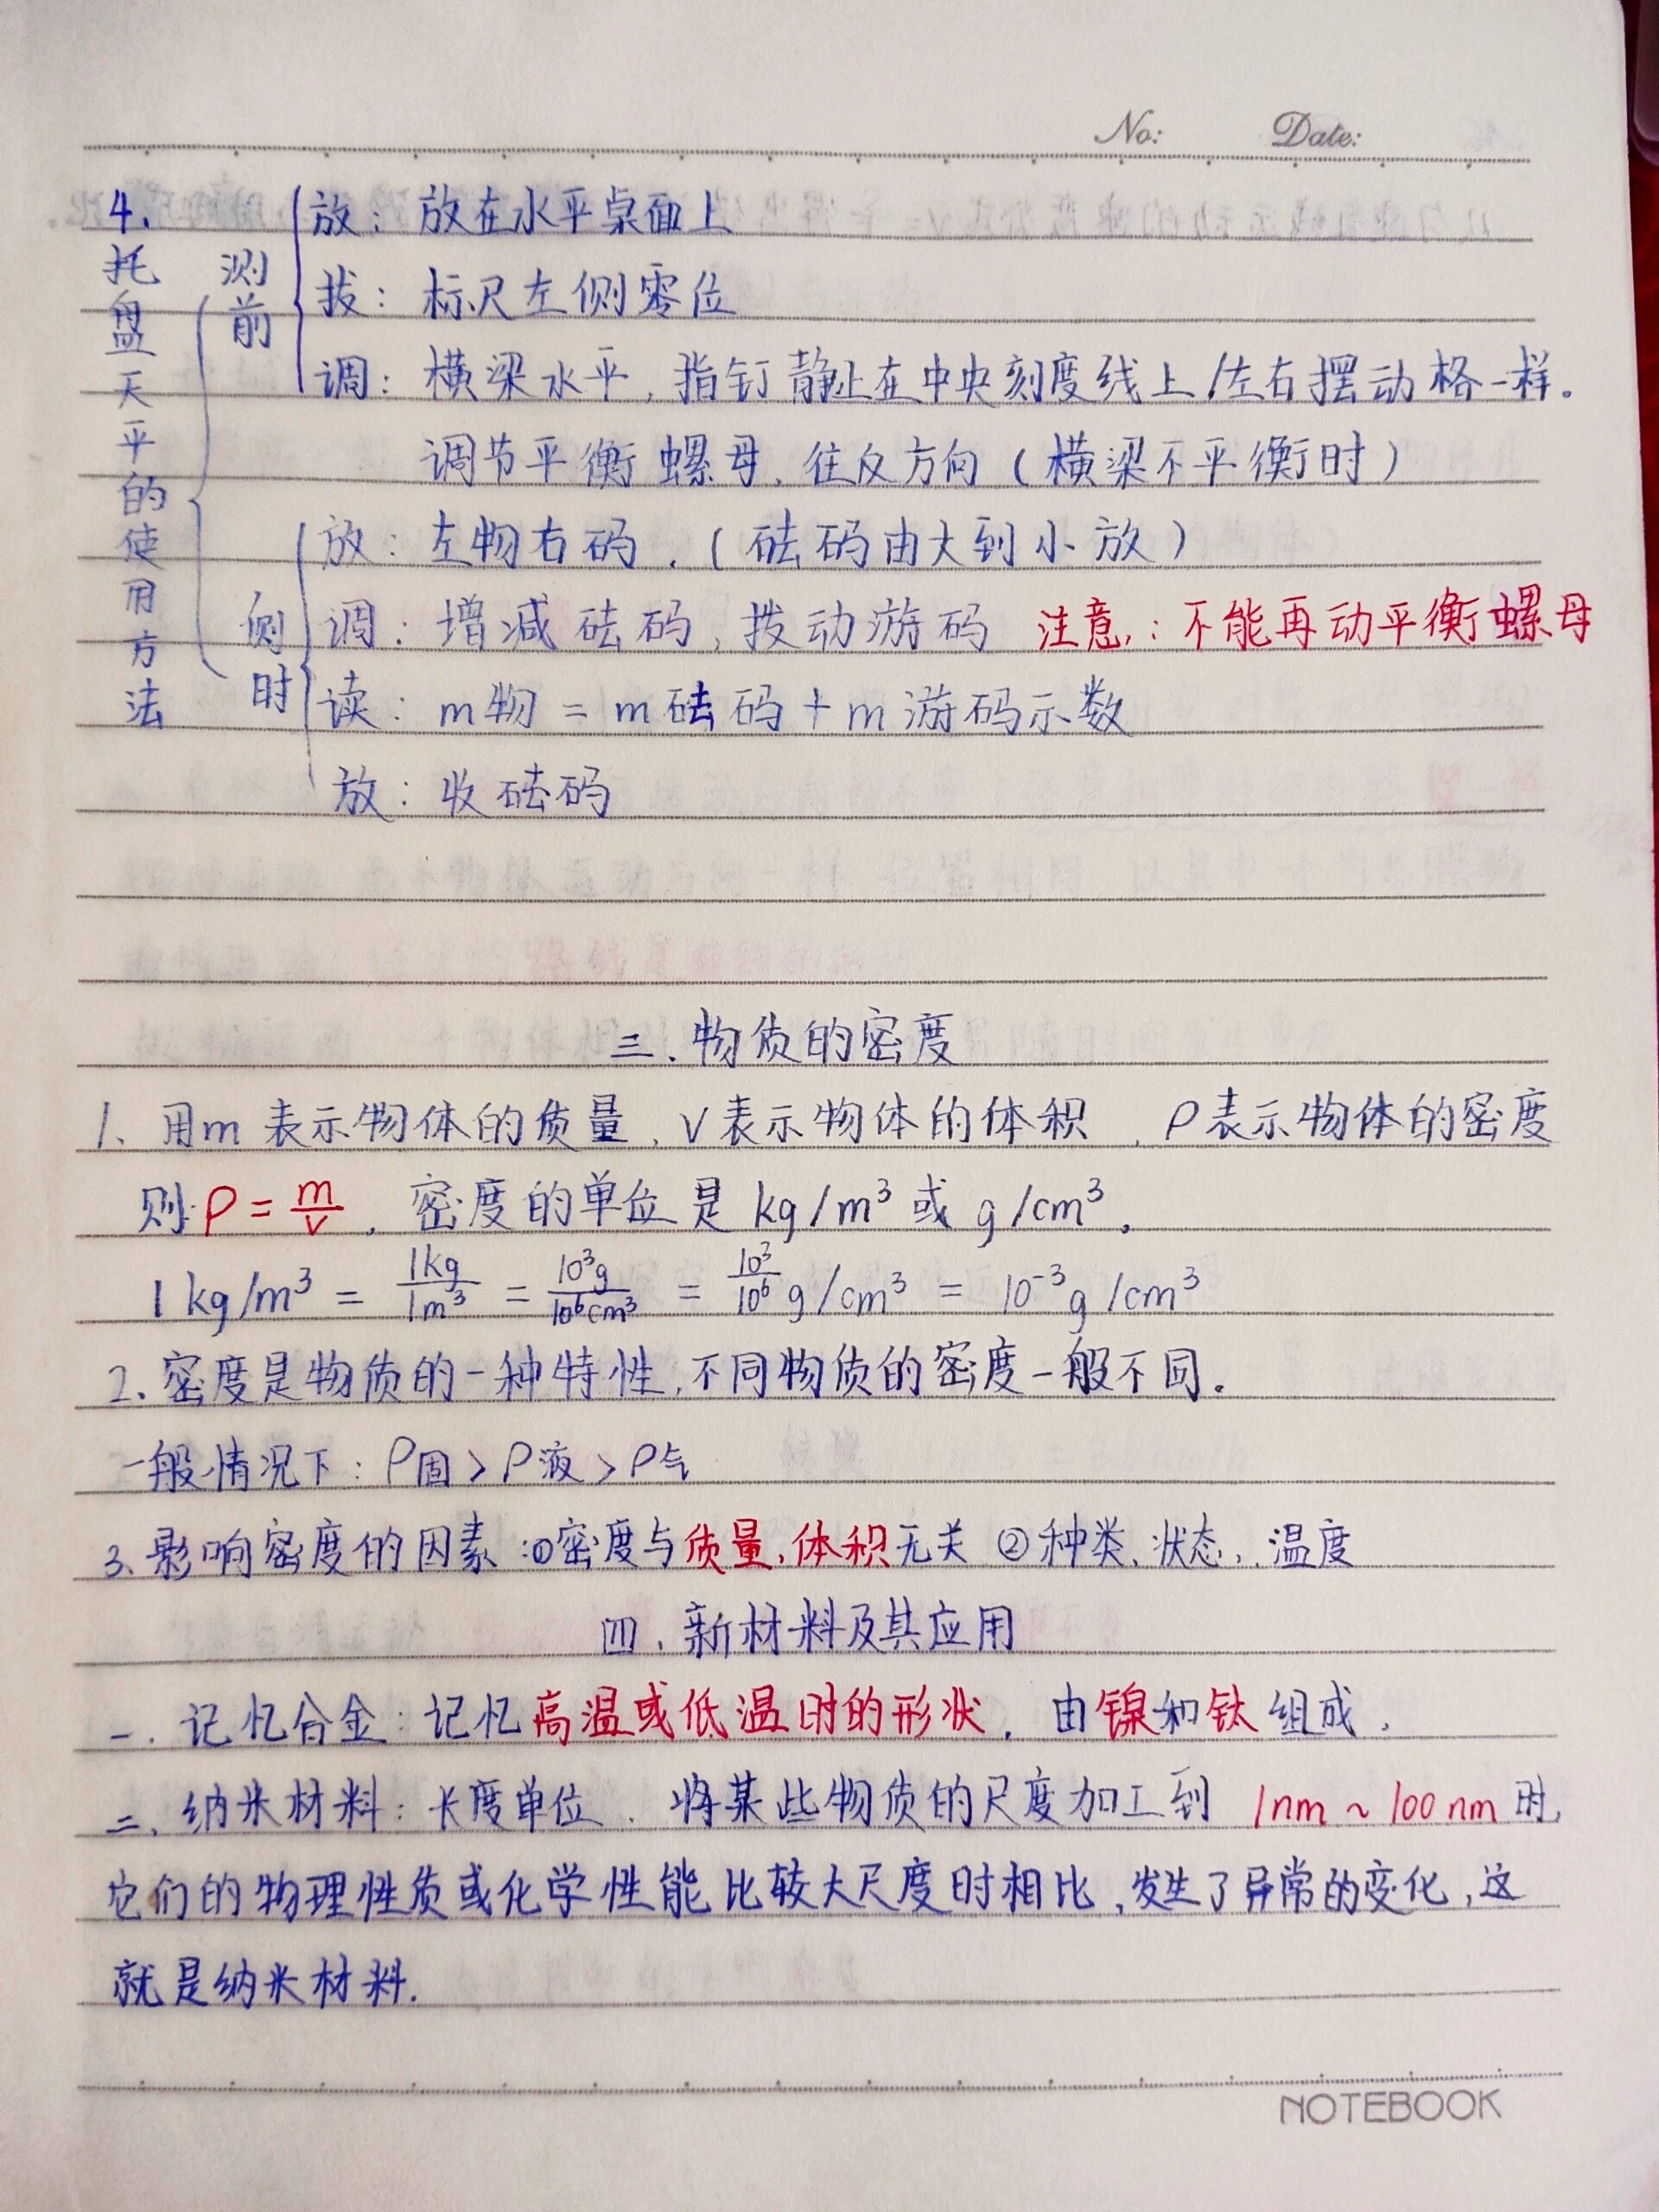 No: Date:
4.托盘天平的使用方法
测前
放：放在水平桌面上
拔：标尺左侧零位
调：横梁水平，指钉静止在中央刻度线上/左右摆动格一样。
调节平衡螺母，往反方向（横梁不平衡时）
侧时
放：左物右码，（砝码由大到小放）
调：增减砝码，拨动游码 注意：不能再动平衡螺母
读：m物 = m砝码 + m游码示数
放：收砝码
三、物质的密度
1、用m表示物体的质量，V表示物体的体积，ρ表示物体的密度
则：ρ = m/v，密度的单位是 kg/m³ 或 g/cm³。
1 kg/m³ = 1kg/1m³ = 10³g/10⁶cm³ = 10³/10⁶ g/cm³ = 10⁻³g/cm³
2、密度是物质的一种特性，不同物质的密度一般不同。
一般情况下：ρ固 > ρ液 > ρ气
3、影响密度的因素：①密度与质量，体积无关 ②种类、状态、温度
四、新材料及其应用
一、记忆合金：记忆高温或低温时的形状，由镍和钛组成，
二、纳米材料：长度单位．将某些物质的尺度加工到 1nm ~ 100nm时，
它们的物理性质或化学性能比较大尺度时相比，发生了异常的变化，这
就是纳米材料.
NOTEBOOK